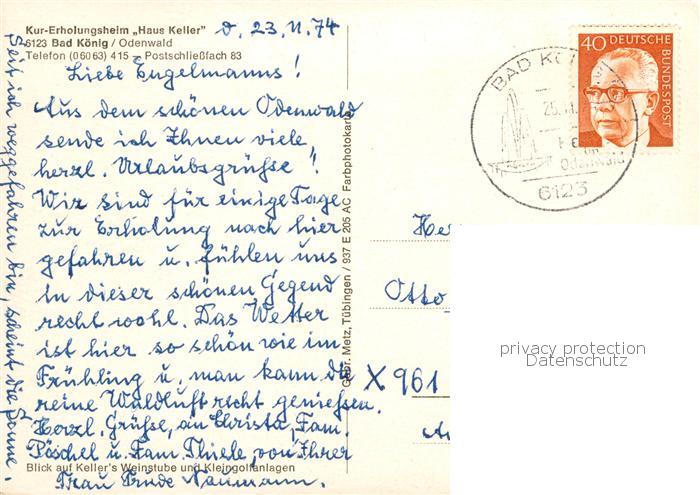 Kur-Erholungsheim „Haus Keller"
6123 Bad König / Odenwald
Telefon (06063) 415 – Postschließfach 83
d. 23.11.74
Liebe Engelmanns!
Aus dem schönen Odenwald
sende ich Ihnen viele
herzl. Urlaubsgrüße!
Wir sind für einige Tage
zur Erholung nach hier
gefahren u. fühlen uns
in dieser schönen Gegend
recht wohl. Das Wetter
ist hier so schön wie im
Frühling u. man kann die
reine Waldluft recht genießen.
Herzl. Grüße, an Christa, Fam.
Pöschel u. Fam. Thiele, von Ihrer
Frau Trude Naumann.
Seit ich weggefahren bin, scheint die Sonne.
Blick auf Keller's Weinstube und Kleingolfanlagen
Gebr. Metz, Tübingen / 937 E 205 AC Farbphotokarte
40 DEUTSCHE BUNDESPOST
BAD KÖ
25.11.7
Odenwald
6123
Otto
X 961
privacy protection
Datenschutz